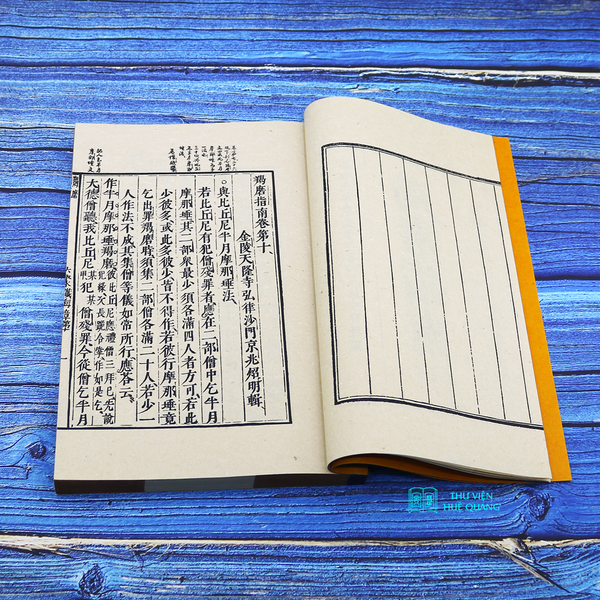 羯磨指南卷第十
金陵天隆寺弘律沙門京兆炤明輯
○與比丘尼半月摩那埵法
若比丘尼有犯僧殘罪者應在二部僧中乞半月
摩那埵其二部衆最少須各滿四人者方可若此
少彼多或此多彼少皆不得作若彼行摩那埵竟
乞出罪羯磨時須集二部僧各滿二十人若少一
人作法不成其集僧等儀如常所行應答云
作半月摩那埵羯磨彼比丘尼應禮僧三拜已先說
大德僧聽我比丘尼某甲犯某僧殘罪今從僧乞半月
THƯ VIỆN
HUỆ QUANG